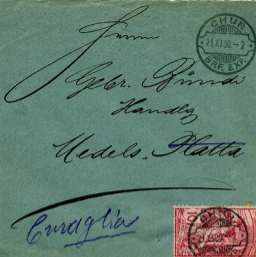 CHUR
21.XI.00.-2
BRF. EXP.
Herrn
Gebr. Bündi
Handlg
Medels-Platta
Curaglia
CHUR